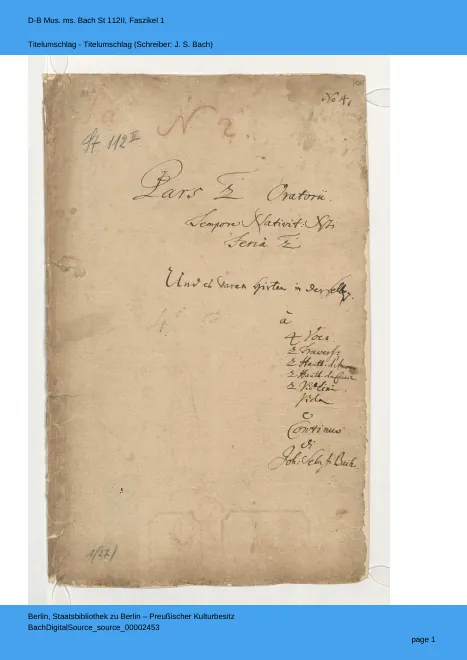 D-B Mus. ms. Bach St 112II, Faszikel 1
Titelumschlag - Titelumschlag (Schreiber: J. S. Bach)
No 4,
N 2.
St 112 II
Pars 2 Oratorii.
Tempore Nativit: Xsti
Feria 2
Und es waren Hirten in derselben.
à
4 Voci.
2 Travers:
2 Hautb. d'Amour
2 Hautb. da Caccia
2 Violini
Viola
e
Continuo
di
Joh: Seb: Bach
Berlin, Staatsbibliothek zu Berlin – Preußischer Kulturbesitz
BachDigitalSource_source_00002453
page 1